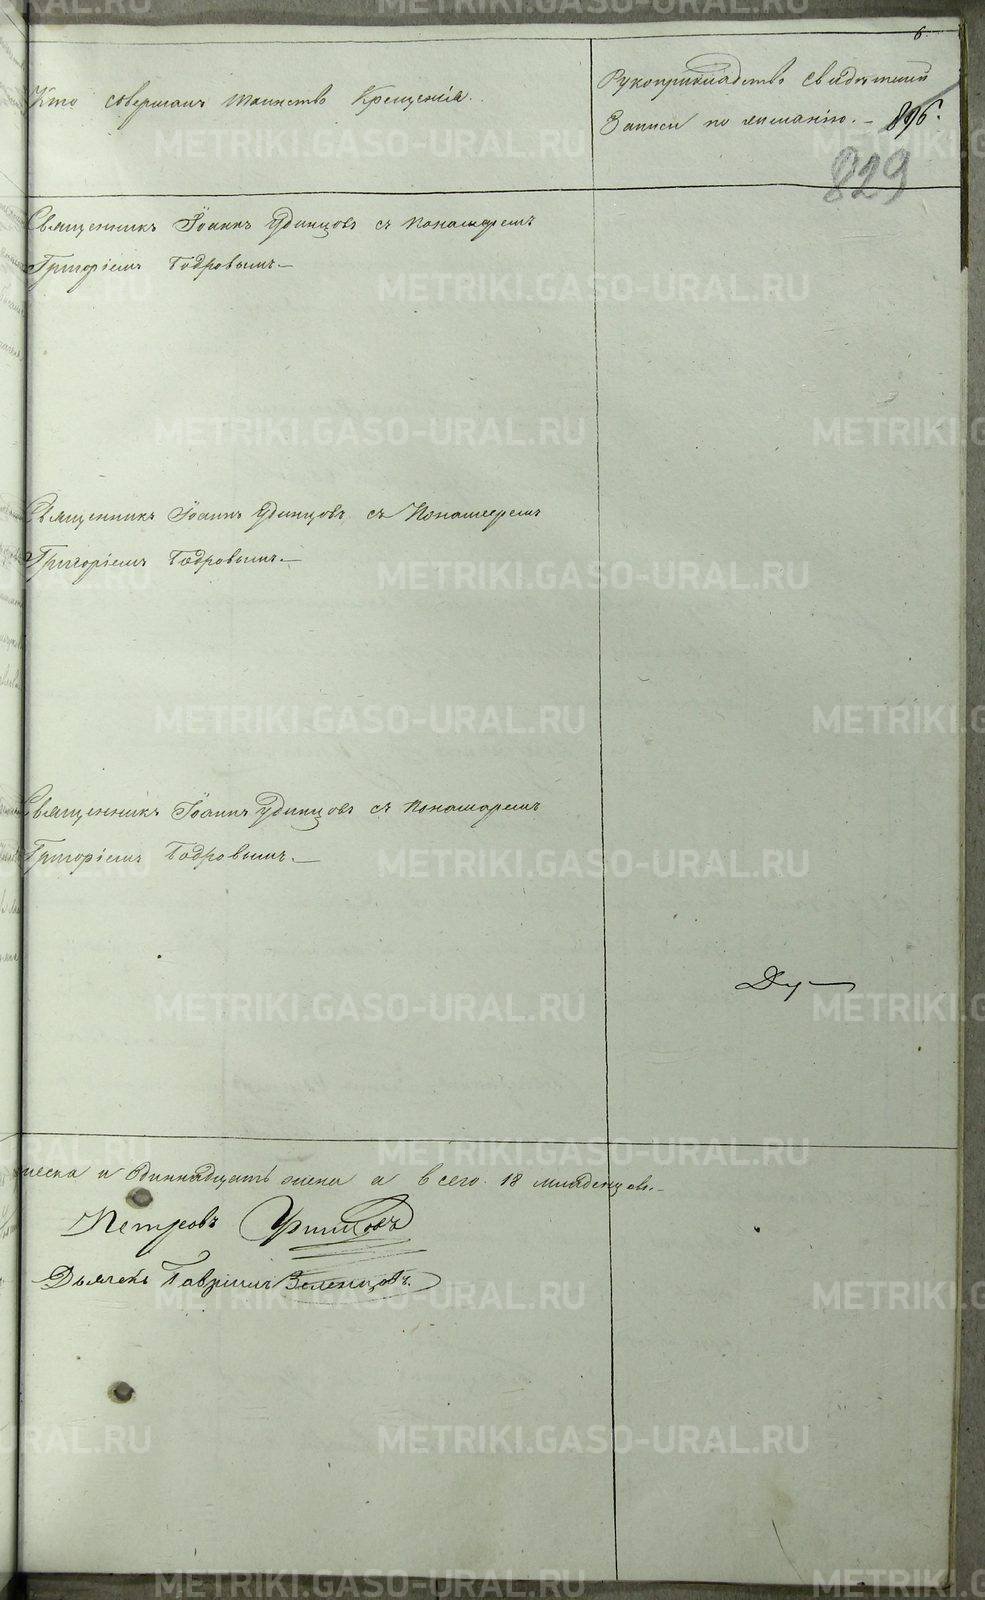 6.
Кто совершалъ таинство Крещенія.
Рукоприкладство свидѣтелей
записи по желанію. – 896.
829
Священникъ Іоаннъ Удинцовъ съ пономаремъ
Григоріемъ Бобровымъ.—
Священникъ Іоаннъ Удинцовъ съ Пономаремъ
Григоріемъ Бобровымъ.—
Священникъ Іоаннъ Удинцовъ съ пономаремъ
Григоріемъ Бобровымъ.—
и одиннадцать женска а всего 18 младенцевъ.—
Петровъ
Дьячекъ Гавріилъ Зеленцовъ.
METRIKI.GASO-URAL.RU